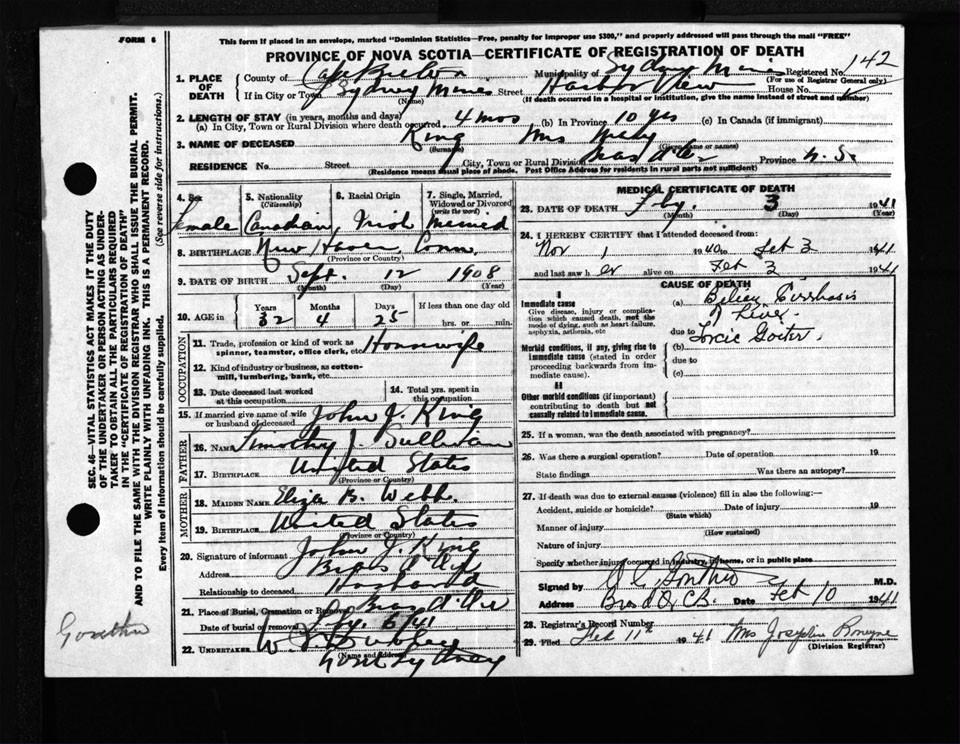 FORM 6
This form if placed in an envelope, marked "Dominion Statistics—Free, penalty for improper use $300," and properly addressed will pass through the mail "FREE"
PROVINCE OF NOVA SCOTIA—CERTIFICATE OF REGISTRATION OF DEATH
1. PLACE OF DEATH County of Cape Breton Municipality of Sydney Mines Registered No. 142
(For use of Registrar General only)
If in City or Town Sydney Mines Street Harbor View House No.
(Name) (If death occurred in a hospital or institution, give the name instead of street and number)
2. LENGTH OF STAY (in years, months and days)
(a) In City, Town or Rural Division where death occurred 4 mos (b) In Province 10 yrs (c) In Canada (if immigrant)
3. NAME OF DECEASED King Mrs
(Surname) (Given name or names)
RESIDENCE No. Street City, Town or Rural Division Bras d'Or Province N.S.
(Residence means usual place of abode. Post Office Address for residents in rural parts not sufficient)
4. Sex Female
5. Nationality (Citizenship) Canadian
6. Racial Origin Irish
7. Single, Married, Widowed or Divorced (write the word) Married
8. BIRTHPLACE New Haven Conn.
(Province or Country)
9. DATE OF BIRTH Sept. 12 1908
(Month) (Day) (Year)
10. AGE in Years 32 Months 4 Days 25 If less than one day hrs. or min.
OCCUPATION
11. Trade, profession or kind of work as spinner, teamster, office clerk, etc. Housewife
12. Kind of industry or business, as cotton-mill, lumbering, bank, etc.
13. Date deceased last worked at this occupation
14. Total yrs. spent in this occupation
15. If married give name of wife or husband of deceased John J. King
FATHER
16. NAME Timothy J. Sullivan
17. BIRTHPLACE United States
(Province or Country)
MOTHER
18. MAIDEN NAME Eliza B. Webb.
19. BIRTHPLACE United States
(Province or Country)
20. Signature of informant John J. King
Address Bras d'Or
Relationship to deceased Husband
21. Place of Burial, Cremation or Removal Bras d'Or
Date of burial or removal 6/41
22. UNDERTAKER
(Name and Address)
North Sydney
MEDICAL CERTIFICATE OF DEATH
23. DATE OF DEATH Feby. 3 1941
(Month) (Day) (Year)
24. I HEREBY CERTIFY that I attended deceased from:
Nov 1 1940 to Feb 3 1941
and last saw her alive on Feb 3 1941
CAUSE OF DEATH
I
Immediate cause
Give disease, injury or complication which caused death, not the mode of dying, such as heart failure, asphyxia, asthenia, etc
(a) Biliary Cirrhosis of Liver.
due to Toxic Goiter.
Morbid conditions, if any, giving rise to immediate cause (stated in order proceeding backwards from immediate cause).
(b)
due to
(c)
II
Other morbid conditions (if important) contributing to death but not causally related to immediate cause.
25. If a woman, was the death associated with pregnancy?
26. Was there a surgical operation? Date of operation 19
State findings Was there an autopsy?
27. If death was due to external causes (violence) fill in also the following:—
Accident, suicide or homicide? Date of injury 19
(State which)
Manner of injury
(How sustained)
Nature of injury
Specify whether injury occurred in industry, in home, or in public place
Signed by M.D.
Address Bras d'Or C.B. Date Feb 10 1941
28. Registrar's Record Number
29. Filed Feb 11th 1941 Mrs Josephine
(Division Registrar)
SEC. 46—VITAL STATISTICS ACT MAKES IT THE DUTY
OF THE UNDERTAKER OR PERSON ACTING AS UNDER-
TAKER TO OBTAIN ALL THE PARTICULARS REQUIRED
IN THE "CERTIFICATE OF REGISTRATION OF DEATH"
AND TO FILE THE SAME WITH THE DIVISION REGISTRAR WHO SHALL ISSUE THE BURIAL PERMIT.
WRITE PLAINLY WITH UNFADING INK. THIS IS A PERMANENT RECORD.
Every item of information should be carefully supplied. (See reverse side for instructions.)